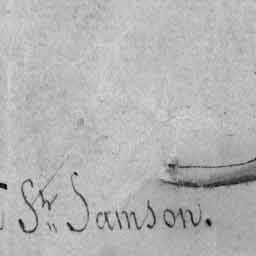 St. Samson.